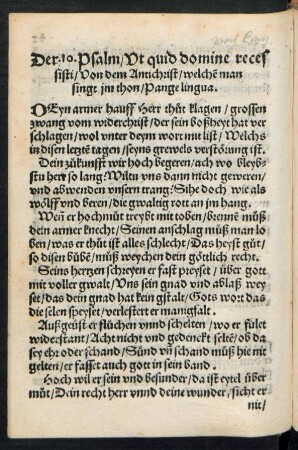 Der .10. Psalm / Ut quid domine reces
sisti / Von dem Antichrist / welchē man
singt jm thon / Pange lingua.
OEyn armer hauff Herr thůt klagen / grossen
zwang vom widerchrist / der sein boßheyt hat ver
schlagen / wol unter deym wort mit list / Welchs
in disen letztē tagen / seyns grewels verstörung ist.
Dein zůkunfft wir hoch begeren / ach wo bleybs
stu herr so lang: Wiltu vns dann nicht geweren /
und abwenden unsern trang: Sihe doch wie als
wölff und beren / die gwaltig rott an jm hang.
Weñ er hochmůt treybt mit toben / brennē můß
dein armer knecht / Seinen anschlag můß man lo
ben / was er thůt ist alles schlecht / Das heyst gůt /
so disen bůbē / můß weychen dein götlich recht.
Seins hertzen schreyen er fast preyset / über gott
mit voller gwalt / Uns sein gnad und ablaß wey
set / das dein gnad hat kein gstalt / Gots wort das
die selen speyset / verlestert er manigfalt.
Außgeüst er flüchen vnnd schelten / wo er fület
widerstant / Acht nicht und gedenckt seltē / ob da
sey ehr oder schand / Sünd vñ schand můß hie nit
gelten / er fasset auch gott in sein band.
Hoch wil er sein vnd besunder / da ist eytel über
můt / Dein recht herr vnnd deine wunder / sicht er
nit /